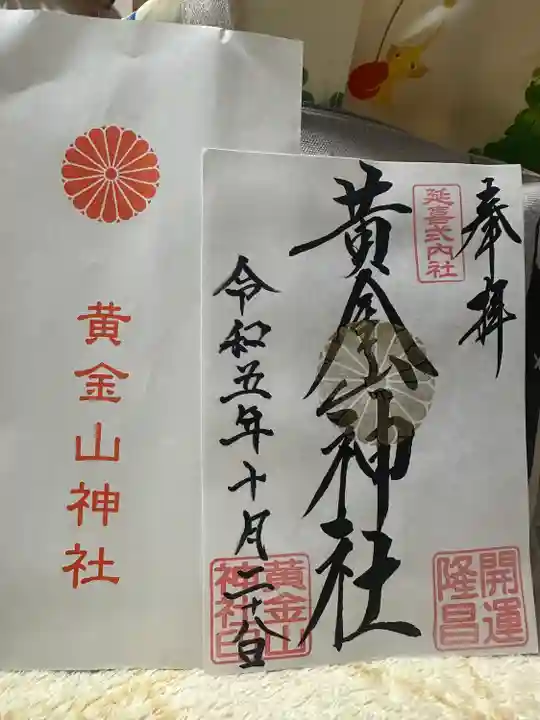 黄金山神社
奉拝
延喜式内社
黄金山神社
開運
隆昌
令和五年十月二十八日
黄金山
神社印